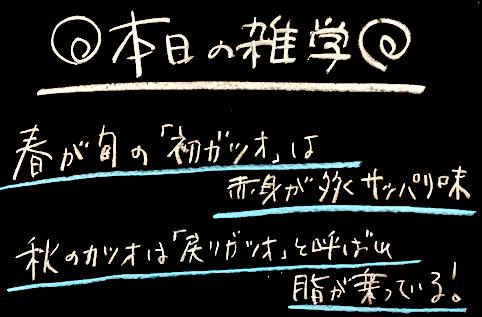 本日の雑学
春が旬の「初ガツオ」は
赤身が多くサッパリ味
秋のカツオは「戻りガツオ」と呼ばれ
脂が乗っている!